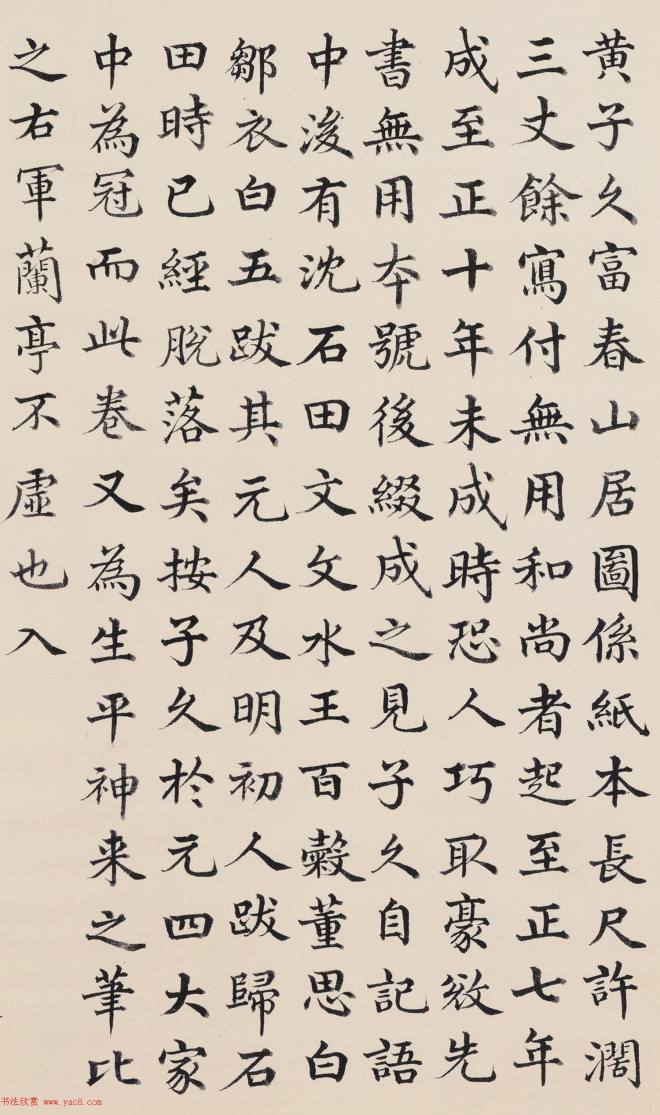 黃子久富春山居圖係紙本長尺許濶
三丈餘寫付無用和尚者起至正七年
成至正十年未成時恐人巧取豪敓先
書無用夲號後綴成之見子久自記語
中後有沈石田文文水王百穀董思白
鄒衣白五跋其元人及明初人跋歸石
田時已經脫落矣按子久於元四大家
中為冠而此卷又為生平神来之筆比
之右軍蘭亭不虛也入
书法欣赏 www.yac8.com